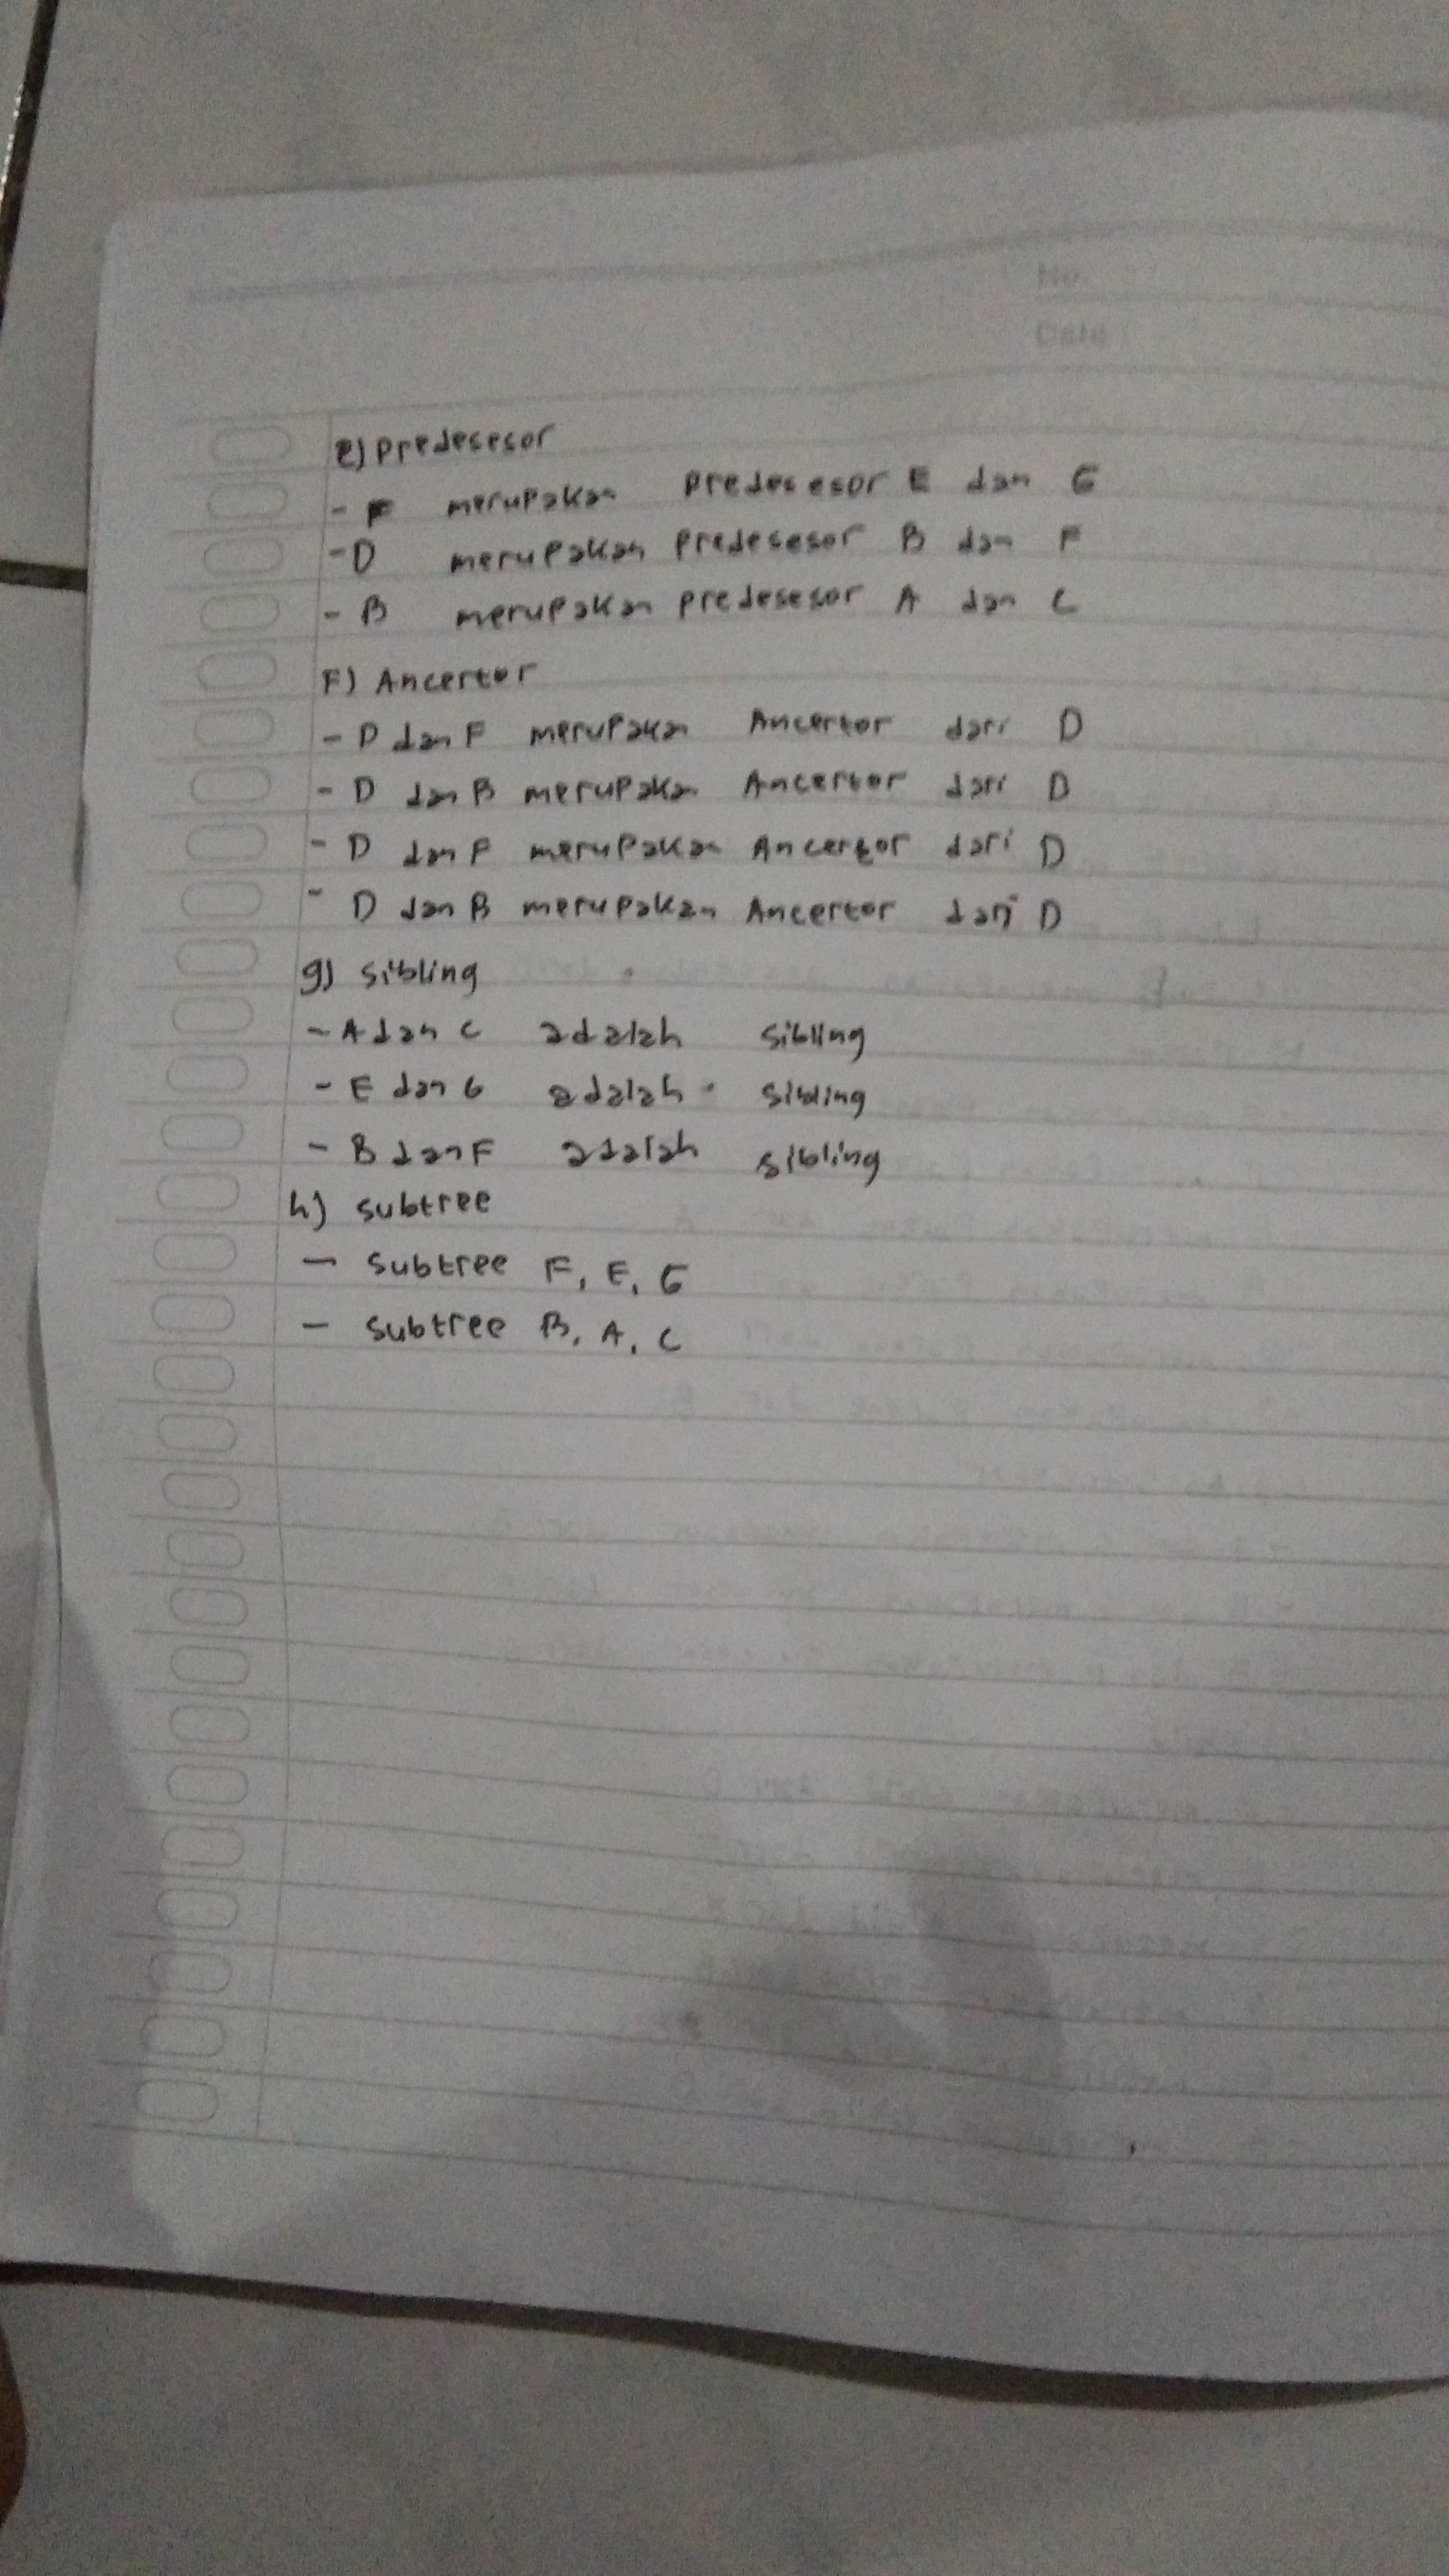 No.
Date
e) Predesesor
- F merupakan predesesor E dan G
- D merupakan predesesor B dan F
- B merupakan predesesor A dan C
F) Ancertor
- D dan F merupakan Ancertor dari D
- D dan B merupakan Ancertor dari D
- D dan F merupakan Ancertor dari D
- D dan B merupakan Ancertor dari D
g) sibling
- A dan C adalah sibling
- E dan G adalah sibling
- B dan F adalah sibling
h) subtree
- subtree F, E, G
- subtree B, A, C